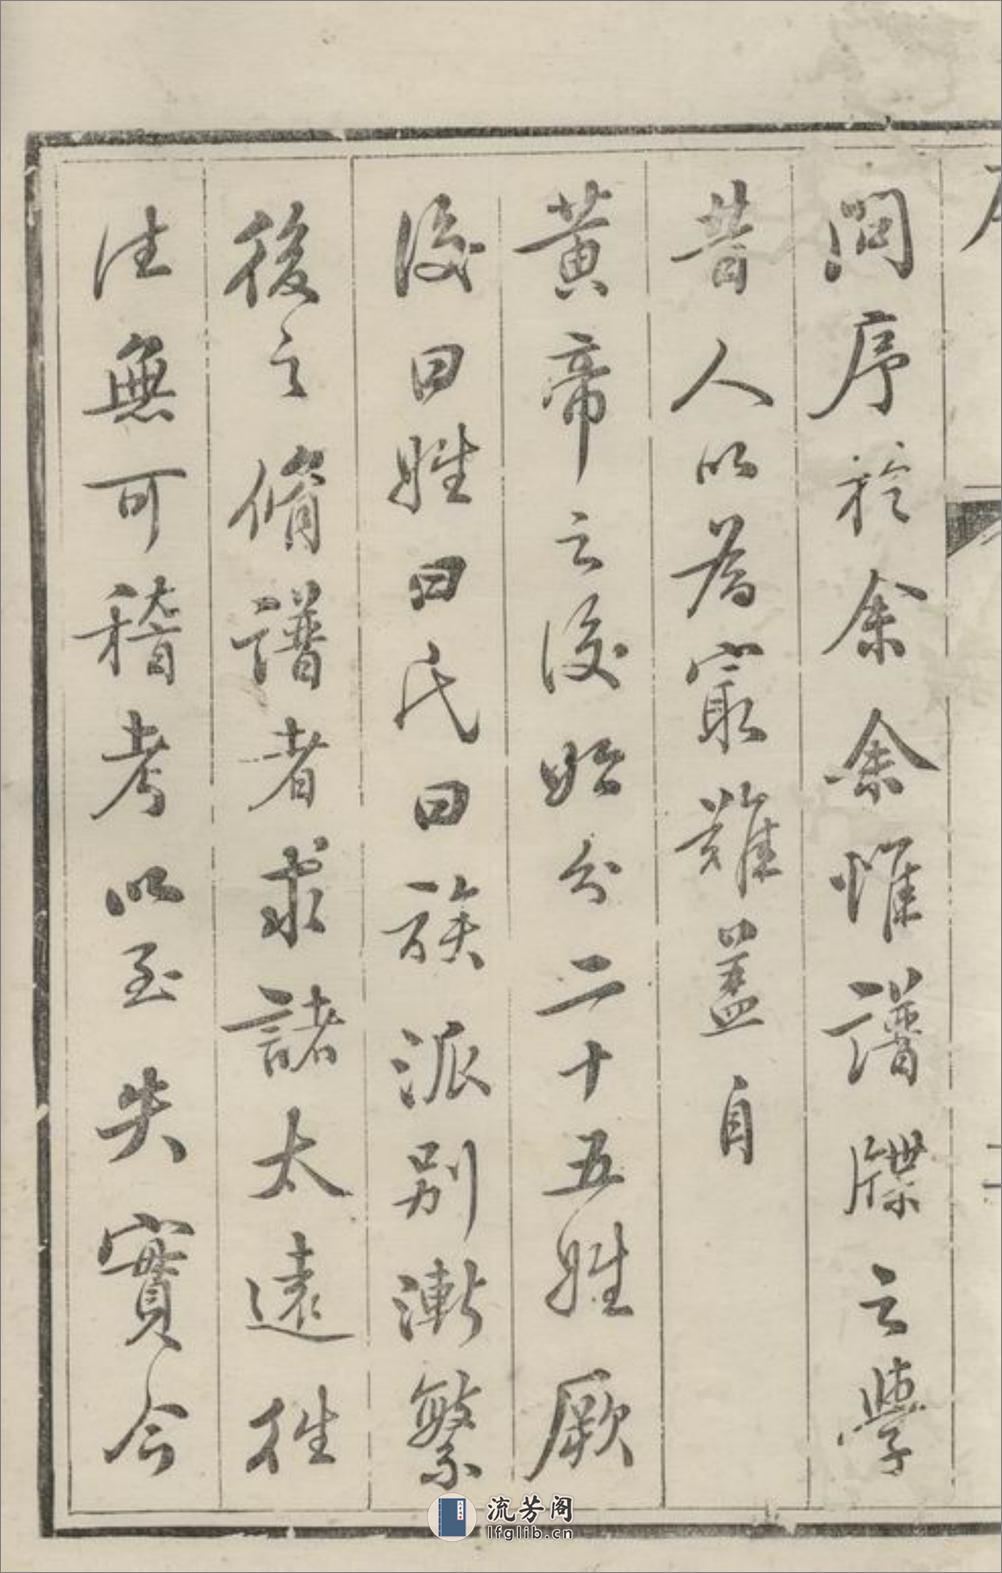 問序於余余惟譜牒之學
昔人以為寂難蓋自
黃帝之後始分二十五姓厥
後曰姓曰氏曰族派别漸繁
後之脩譜者求諸太遠往
往無可稽考以至失實今
流芳阁
lfglib.cn